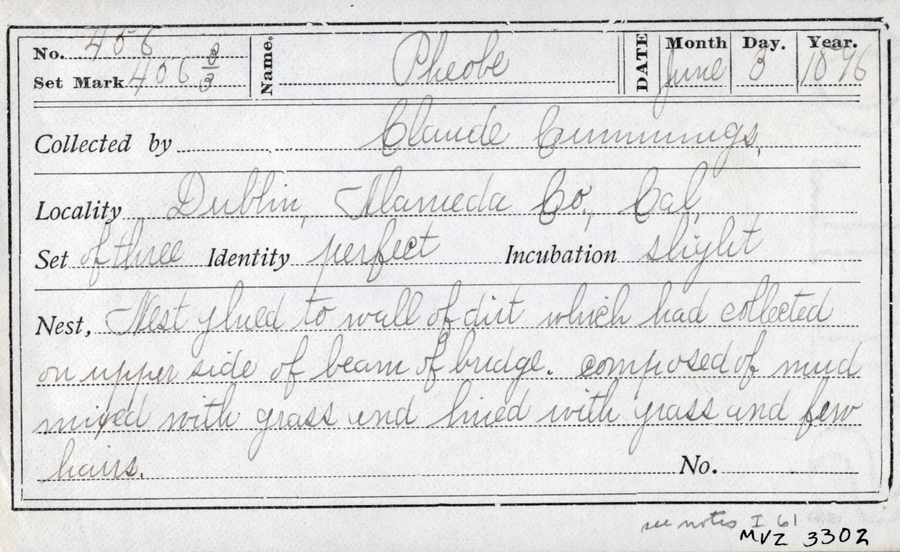 No. 456 Name. Pheobe DATE Month June Day. 3 Year. 1896
Set Mark 456 3/3
Collected by Claude Cummings,
Locality Dublin, Alameda Co., Cal,
Set of three Identity perfect Incubation slight
Nest, Nest glued to wall of dirt which had collected
on upper side of beam of bridge. composed of mud
mixed with grass and lined with grass and few
hairs. No.
see notes I 61
MVZ 3302